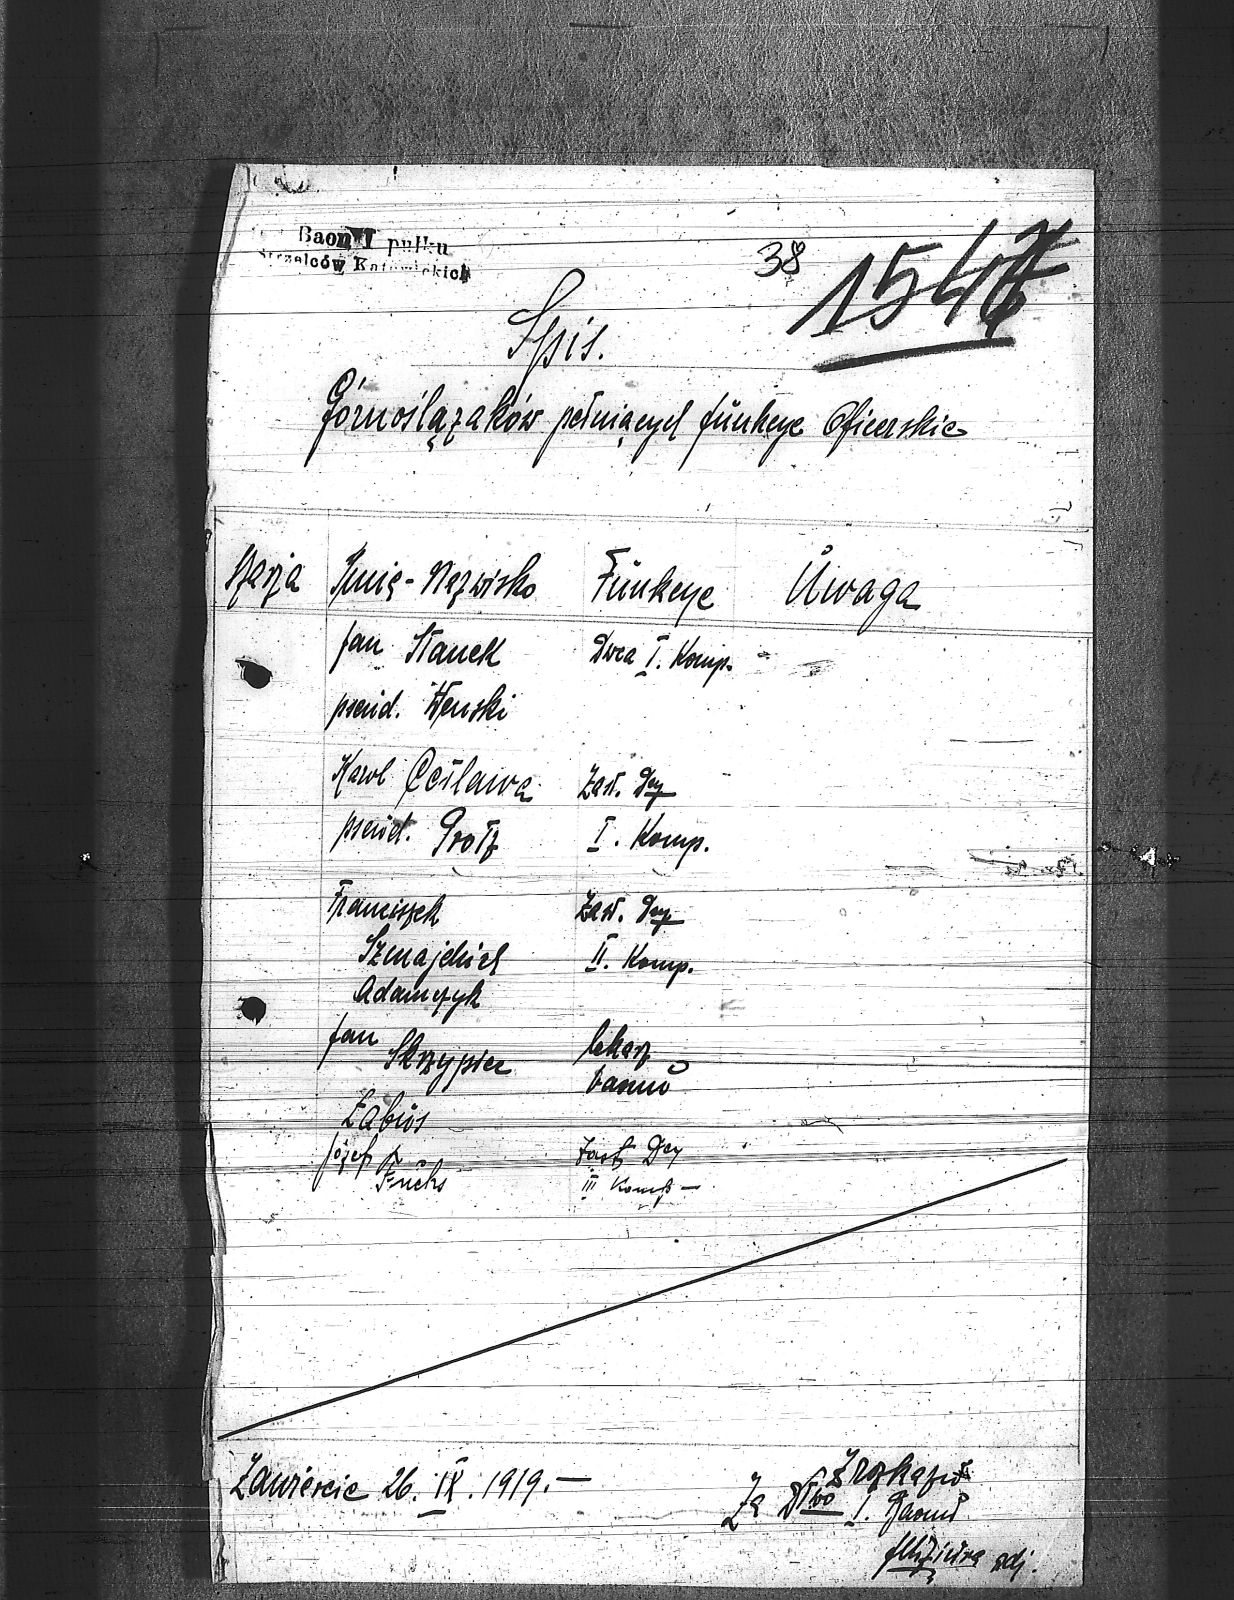 Baon I pułku
Strzelców Katowickich
38
1547
Spis.
Górnoślązaków pełniących funkcye Oficerskie
Szarża Imię-Nazwisko Funkcye Uwaga
Jan Stanek Dwca I. Komp.
pseud. Wenski
Karol Ceślawa Zast. Dcy
pseud. Grotz I. Komp.
Franciszek Zast. Dcy
II. Komp.
Adamczyk
Jan lekarz
Skrzypiec baonu
Zabus
Józef Zast Dcy
Fuchs III Komp —
Zawiercie 26. IX. 1919. —
Z rozkazu
Za Dtwo I. Baonu
adj.